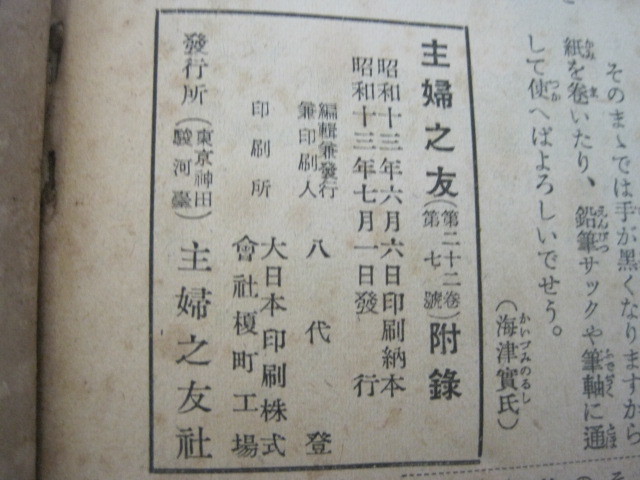 そのまゝでは手が黒くなりますから
紙を卷いたり、鉛筆サックや筆軸に通
して使へばよろしいでせう。
(海津實氏)
かいづみのるし
主婦之友(第二十二卷第七號)附錄
昭和十三年六月六日印刷納本
昭和十三年七月一日發行
編輯兼發行兼印刷人 八代登
印刷所 大日本印刷株式
會社榎町工場
發行所(東京神田駿河臺)主婦之友社